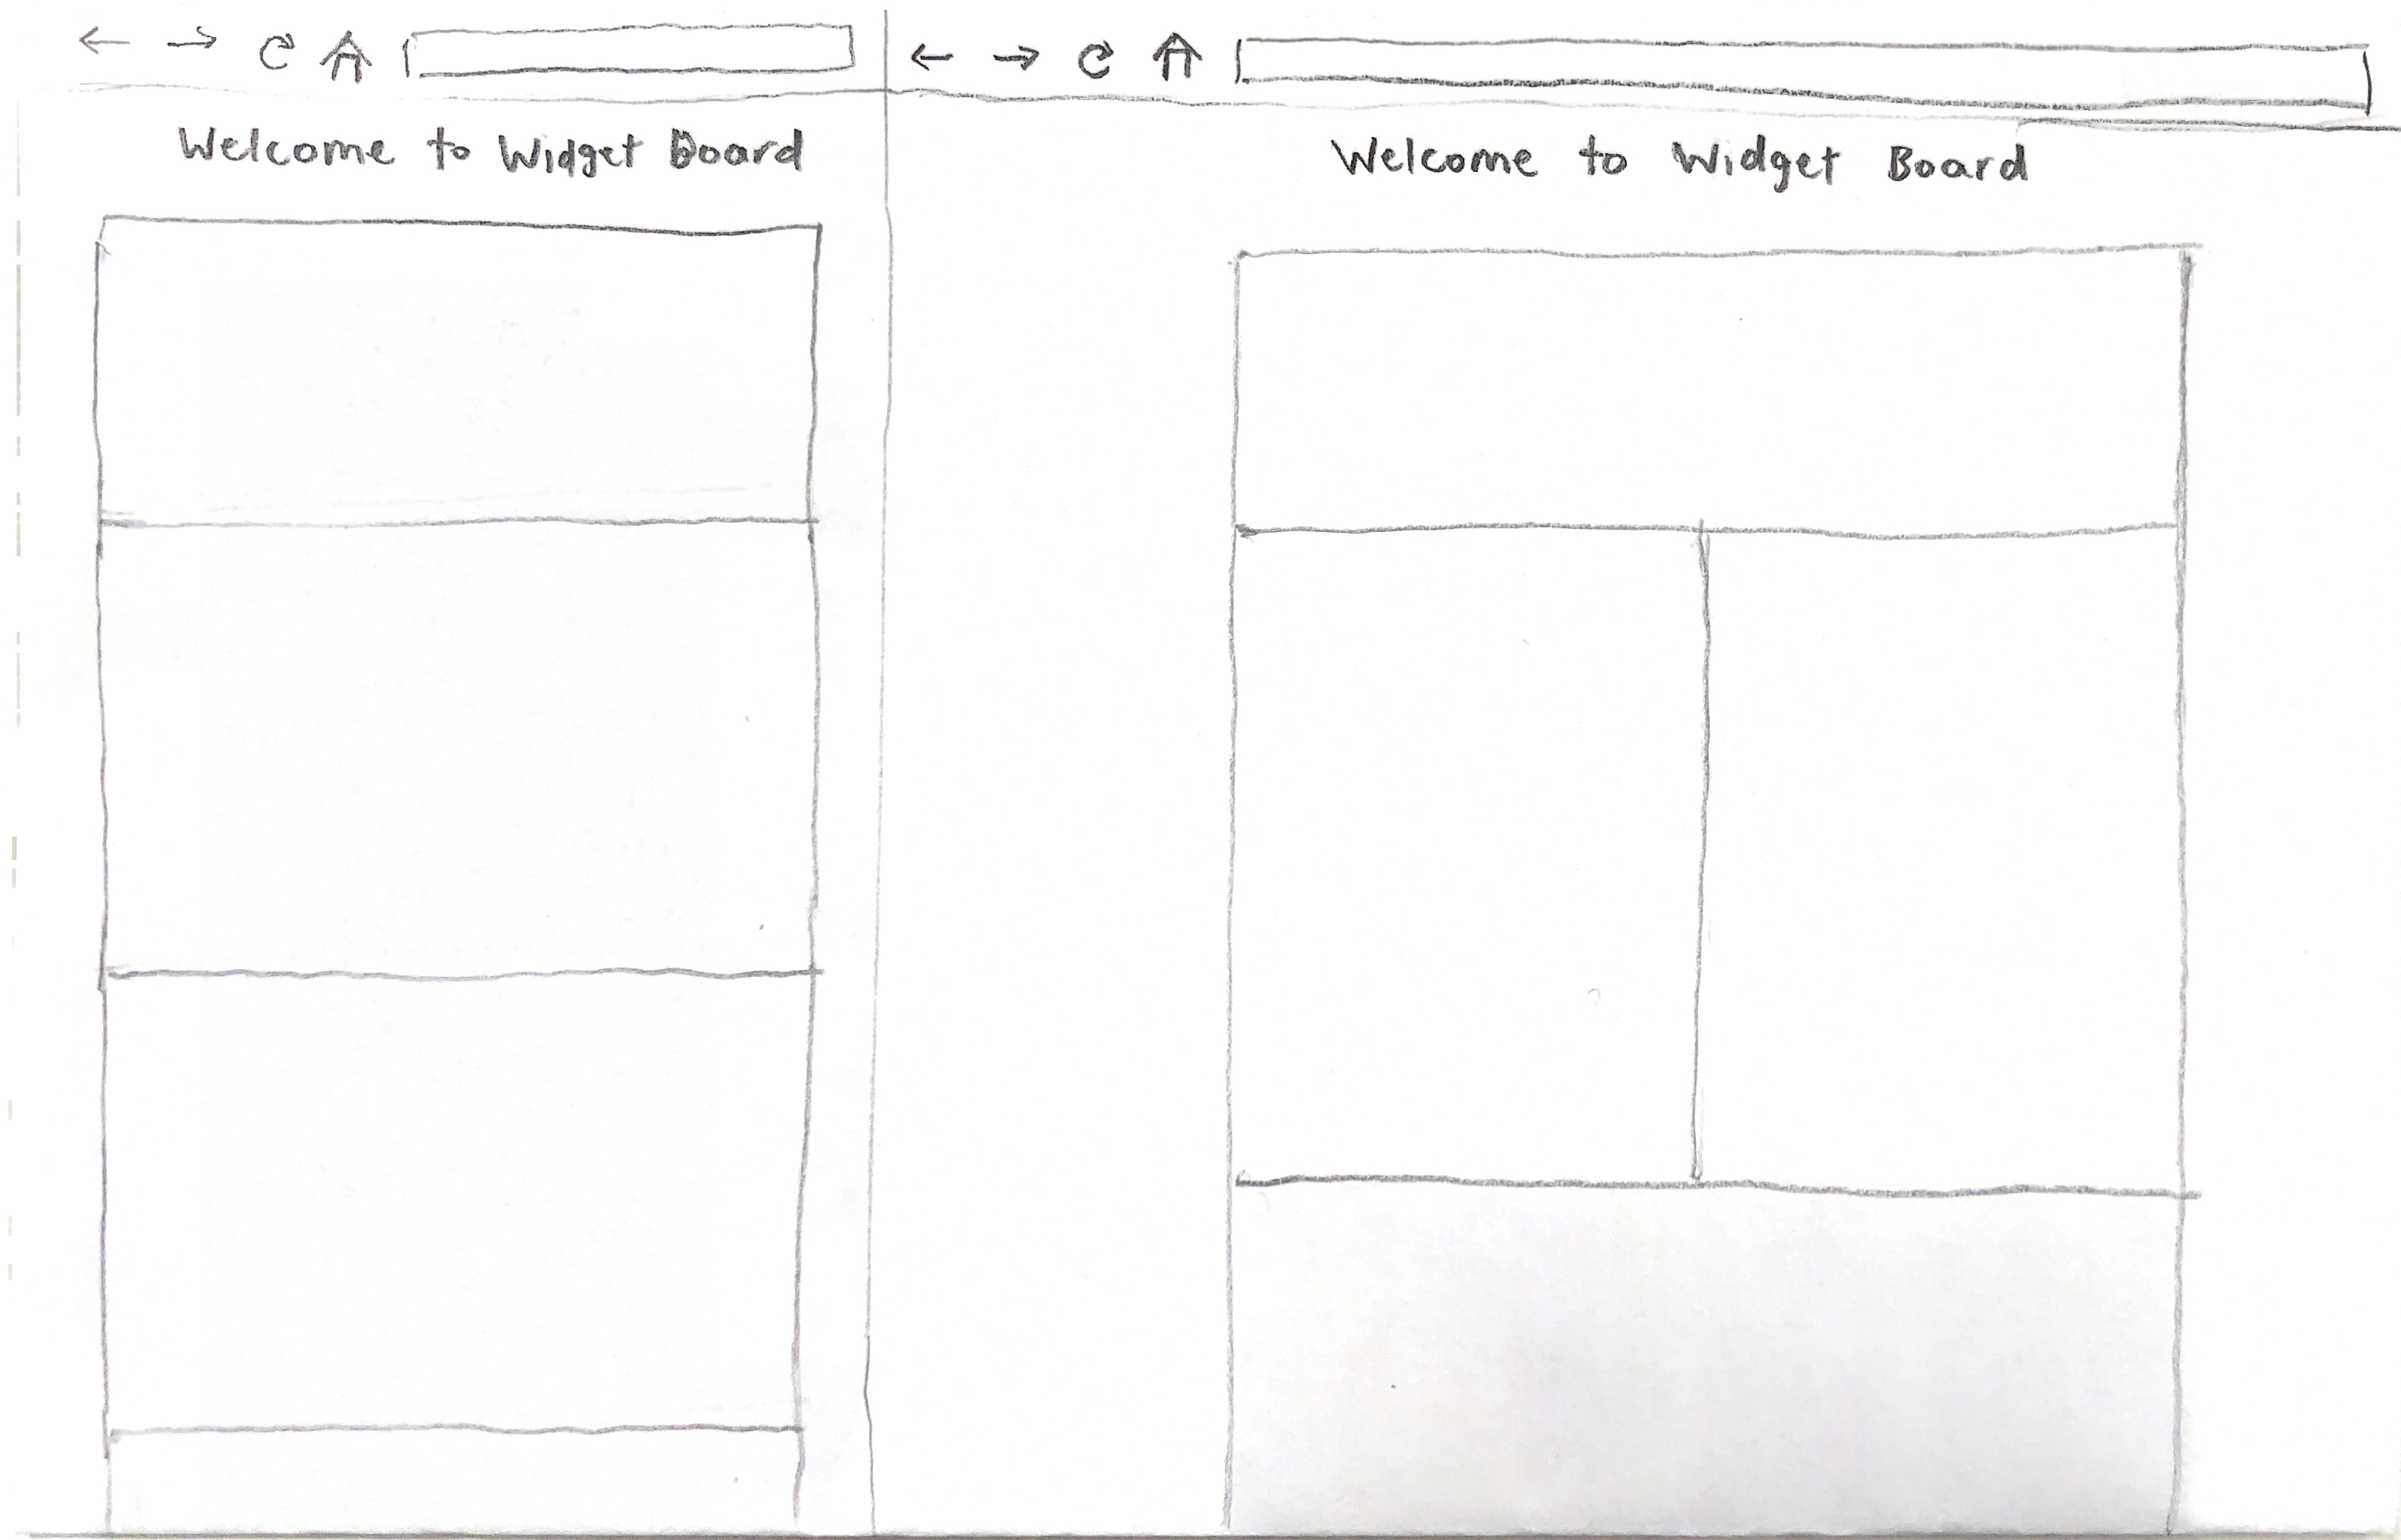 Welcome to Widget Board
Welcome to Widget Board